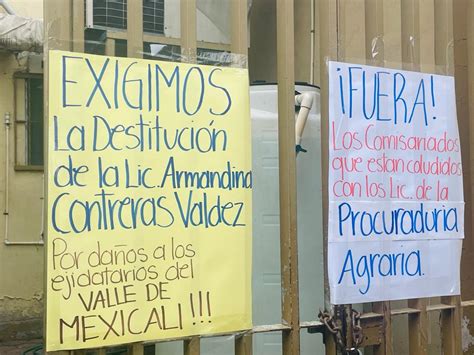 EXIGIMOS
La Destitución
de la Lic. Armandina
Contreras Valdez
Por daños a los
ejidatarios del
VALLE DE
MEXICALI!!!
¡FUERA!
Los Comisariados
que estan coludidos
con los Lic. de la
Procuraduria
Agraria.